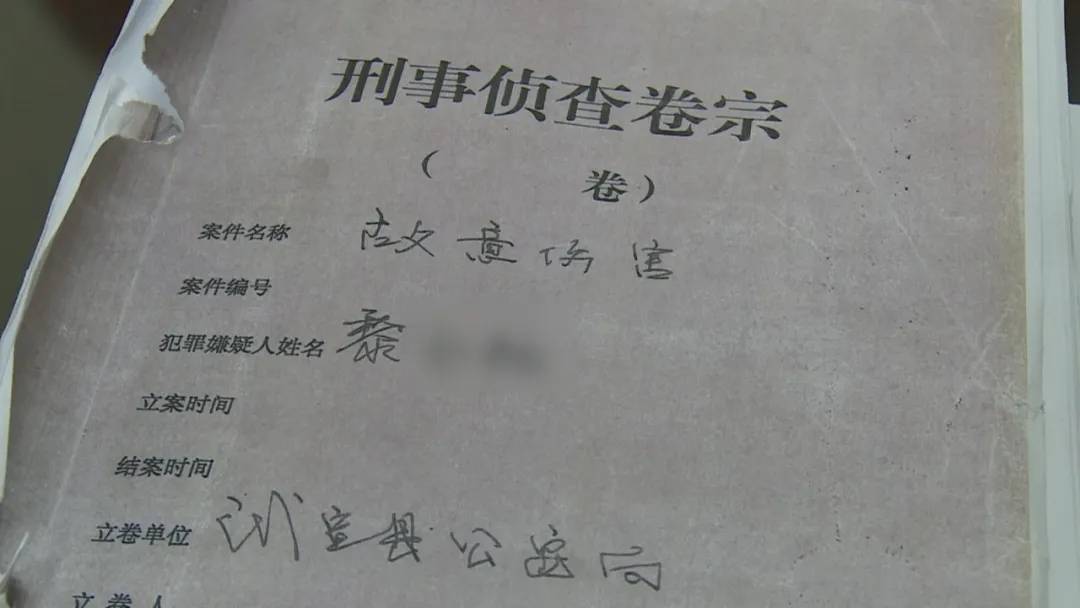 刑事侦查卷宗
( 卷)
案件名称 故意伤害
案件编号
犯罪嫌疑人姓名 黎
立案时间
结案时间
立卷单位 武宣县公安局
立卷人